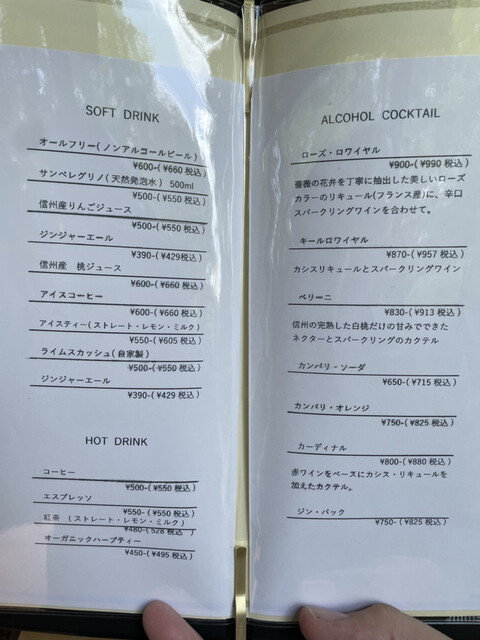 SOFT DRINK
オールフリー(ノンアルコールビール)
¥600-(¥660 税込)
サンペレグリノ(天然発泡水) 500ml
¥500-(¥550 税込)
信州産りんごジュース
¥500-(¥550 税込)
ジンジャーエール
¥390-(¥429税込)
信州産 桃ジュース
¥600-(¥660 税込)
アイスコーヒー
¥600-(¥660 税込)
アイスティー(ストレート・レモン・ミルク)
¥550-(¥605 税込)
ライムスカッシュ(自家製)
¥500-(¥550 税込)
ジンジャーエール
¥390-(¥429 税込)
HOT DRINK
コーヒー
¥500-(¥550 税込)
エスプレッソ
¥550-(¥550 税込)
紅茶 (ストレート・レモン・ミルク)
¥480-(528 税込)
オーガニックハーブティー
¥450-(¥495 税込)
ALCOHOL COCKTAIL
ローズ・ロワイヤル
¥900-(¥990 税込)
薔薇の花弁を丁寧に抽出した美しいローズ
カラーのリキュール(フランス産)に、辛口
スパークリングワインを合わせて。
キールロワイヤル
¥870-(¥957 税込)
カシスリキュールとスパークリングワイン
ベリーニ
¥830-(¥913 税込)
信州の完熟した白桃だけの甘みでできた
ネクターとスパークリングのカクテル
カンパリ・ソーダ
¥650-(¥715 税込)
カンパリ・オレンジ
¥750-(¥825 税込)
カーディナル
¥800-(¥880 税込)
赤ワインをベースにカシス・リキュールを
加えたカクテル。
ジン・バック
¥750-(¥825 税込)